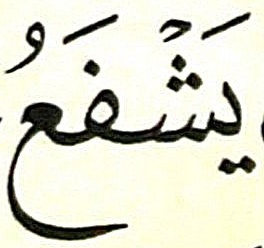 يَشْفَعُ